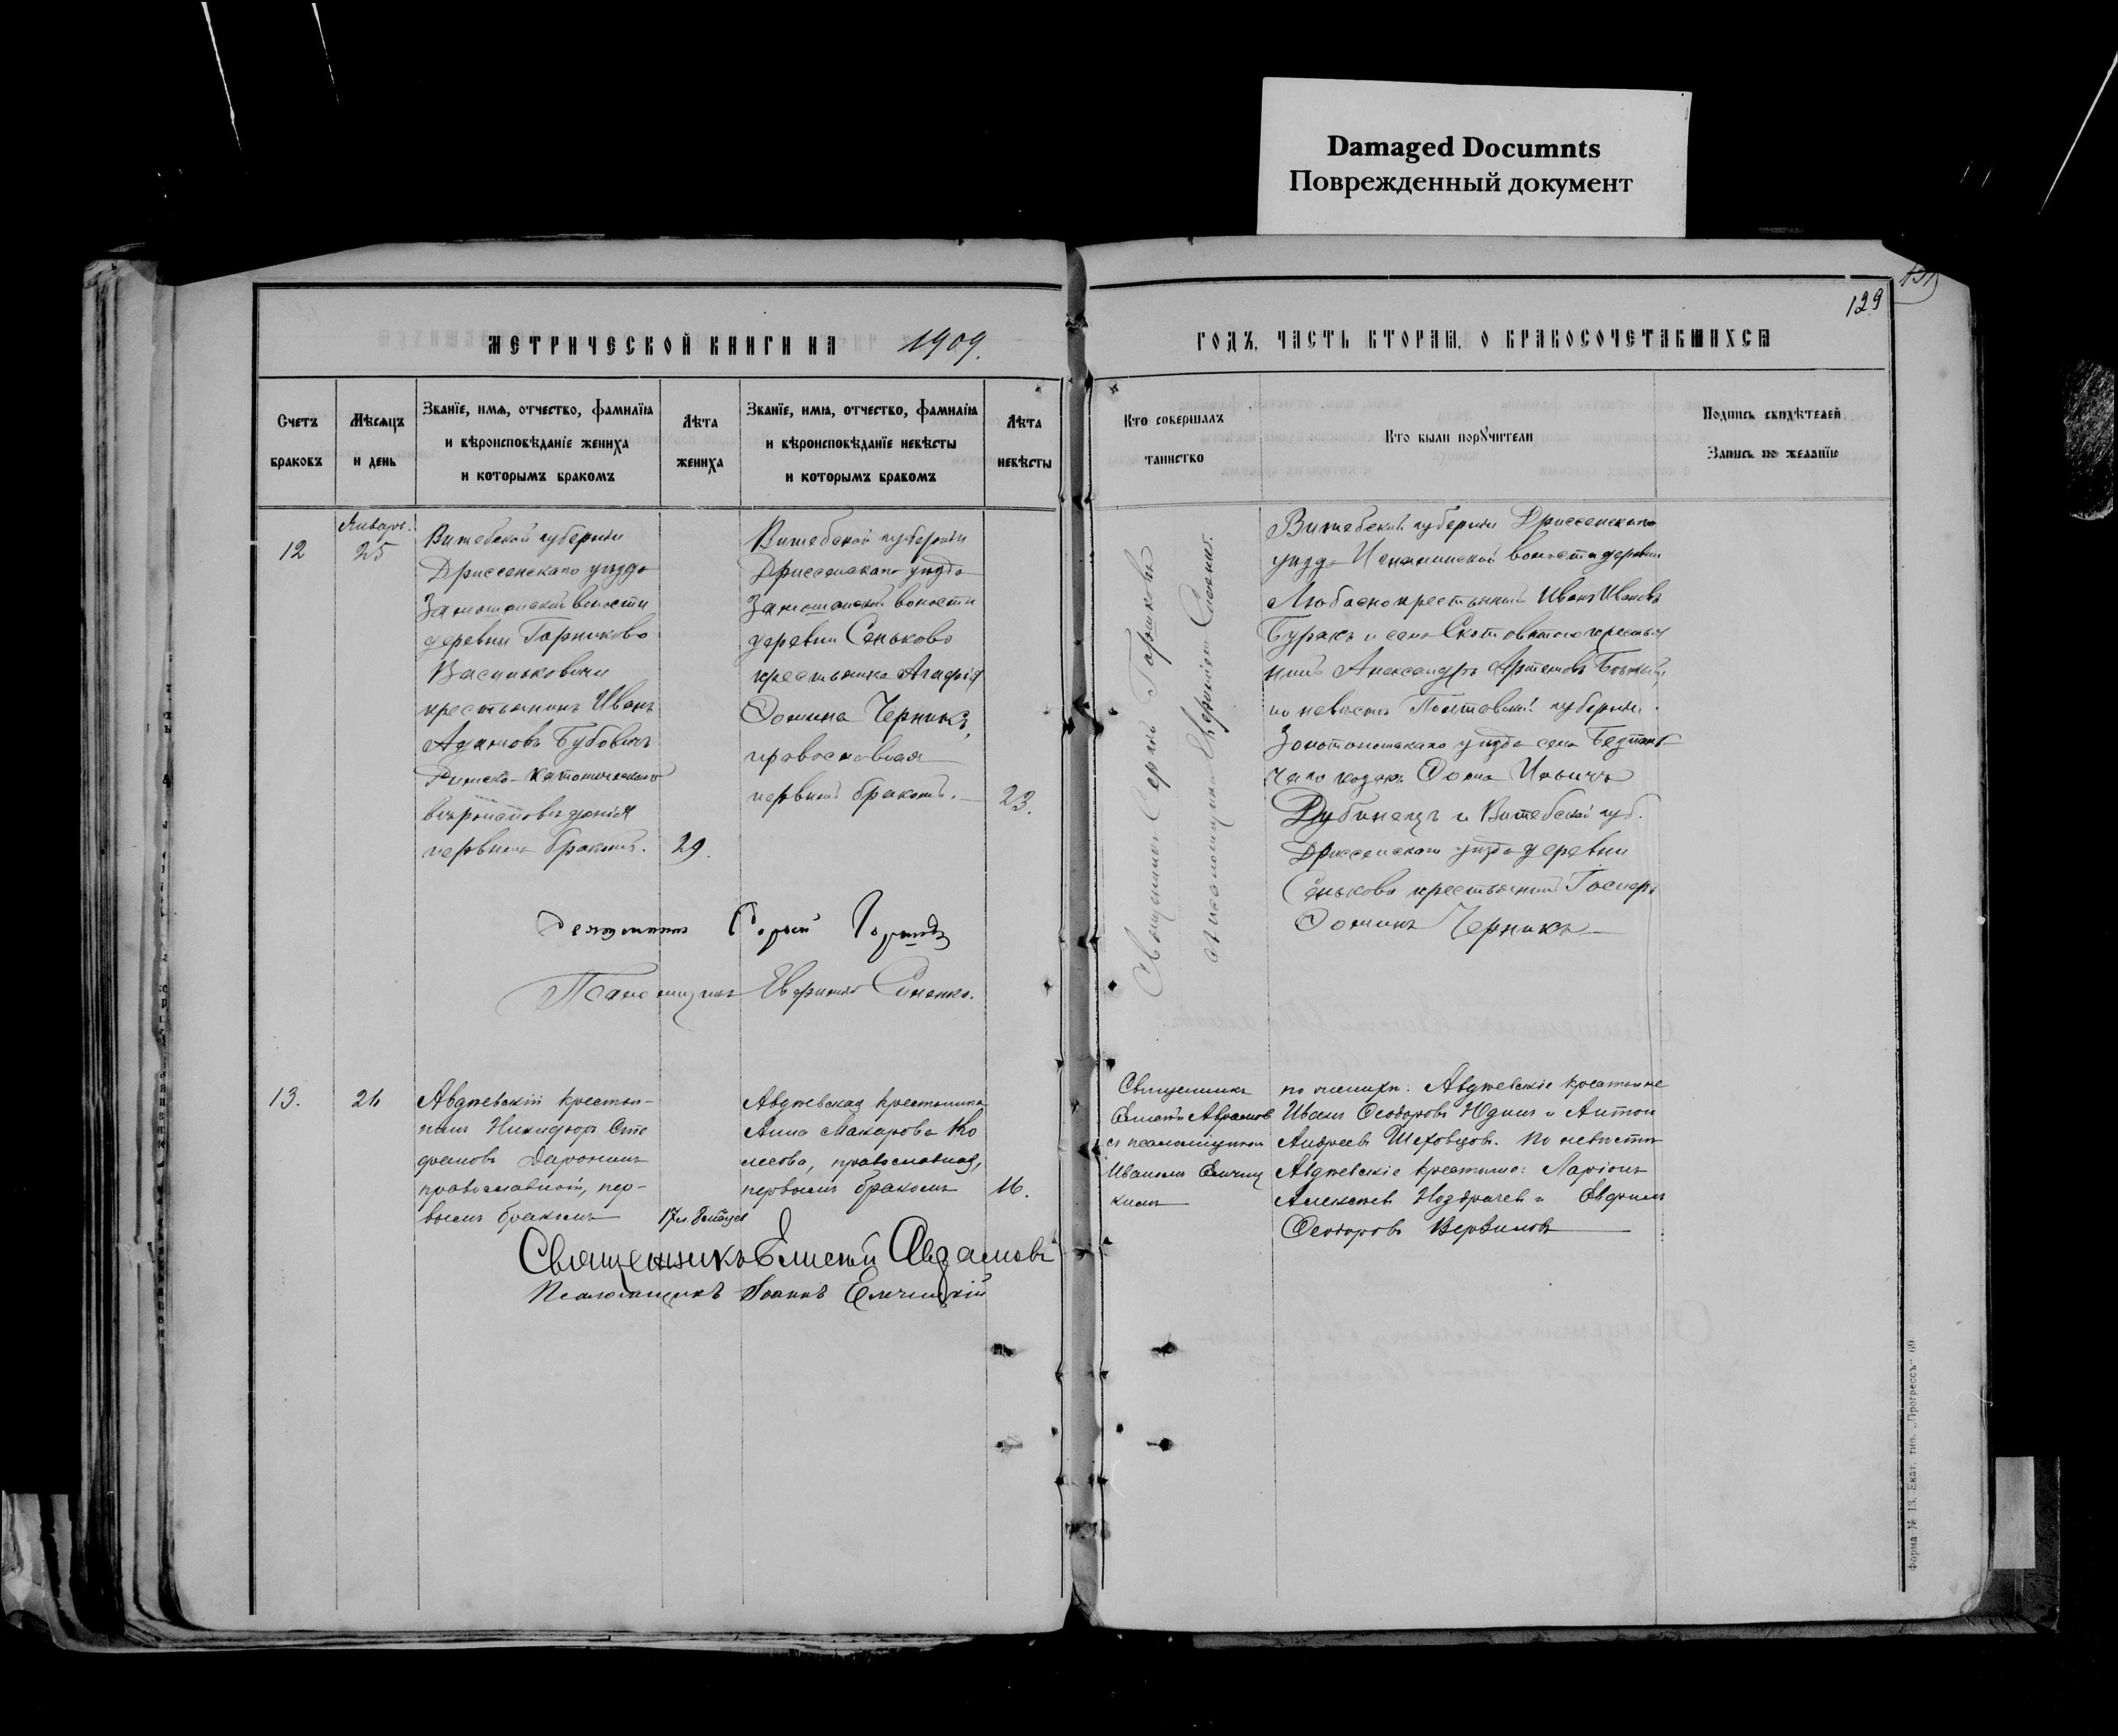 Damaged Documnts
Поврежденный документ
129
МЕТРИЧЕСКОЙ КНИГИ НА 1909.
ГОДЪ, ЧАСТЬ ВТОРАЯ, О БРАКОСОЧЕТАВШИХСЯ
Счетъ
браковъ
Мѣсяцъ
и день
Званіе, имя, отчество, фамилія
и вѣроисповѣданіе жениха
и которымъ бракомъ
Лѣта
жениха
Званіе, имя, отчество, фамилія
и вѣроисповѣданіе невѣсты
и которымъ бракомъ
Лѣта
невѣсты
Кто совершалъ
таинство
Кто были поручители
Подпись свидѣтелей
Запись по желанію
12
Январь.
25
Витебской губерніи
Дриссенскаго уѣзда
волости
деревни Горниково
Васильковичи
крестьянинъ Иванъ
Адамовъ Бубовичъ
Римско-католическаго
вѣроисповѣданія
первымъ бракомъ.
29.
Витебской губерніи
Дриссенскаго уѣзда
волости
деревни Сеньково
крестьянка Агафія
Фомина Черникъ,
православная
первымъ бракомъ.
23.
Священникъ Сергій Горшковъ
съ псаломщикомъ
Витебской губерніи Дриссенскаго
уѣзда волости деревни
крестьянинъ Иванъ Ивановъ
Буракъ и села крестья
нинъ Александръ Артемовъ
по невѣстѣ Полтавской губерніи
Золотоношскаго уѣзда села
козакъ Фома Ильичъ
Дубинецъ и Витебской губ.
Дриссенскаго уѣзда деревни
Сеньково крестьянинъ
Фоминъ Черникъ
Священникъ Сергій Горшковъ
Псаломщикъ
13.
26
Авдѣевскій крестья-
нинъ Никифоръ Сте
фановъ Даронинъ
православный, пер-
вымъ бракомъ
17 и 8 мѣсяцев
Авдѣевская крестьянка
Анна Макарова Ко
лесова, православная,
первымъ бракомъ
16.
Священникъ
Елисей Авраамов
съ псаломщикомъ
Иваномъ Еленец
кимъ
по женихѣ: Авдѣевскіе крестьяне
Иванъ Ѳеодоровъ Юдинъ и Антон
Андреевъ Шеховцовъ. По невѣстѣ
Авдѣевскіе крестьяне: Ларіонъ
Алексѣевъ Ноздрачев и Евфимъ
Ѳеодоровъ Вервиловъ
Священникъ Елисей Авраамовъ
Псаломщикъ Іоаннъ Еленецкій
Форма № 13. Екат. тип. „Прогрессъ“ 69